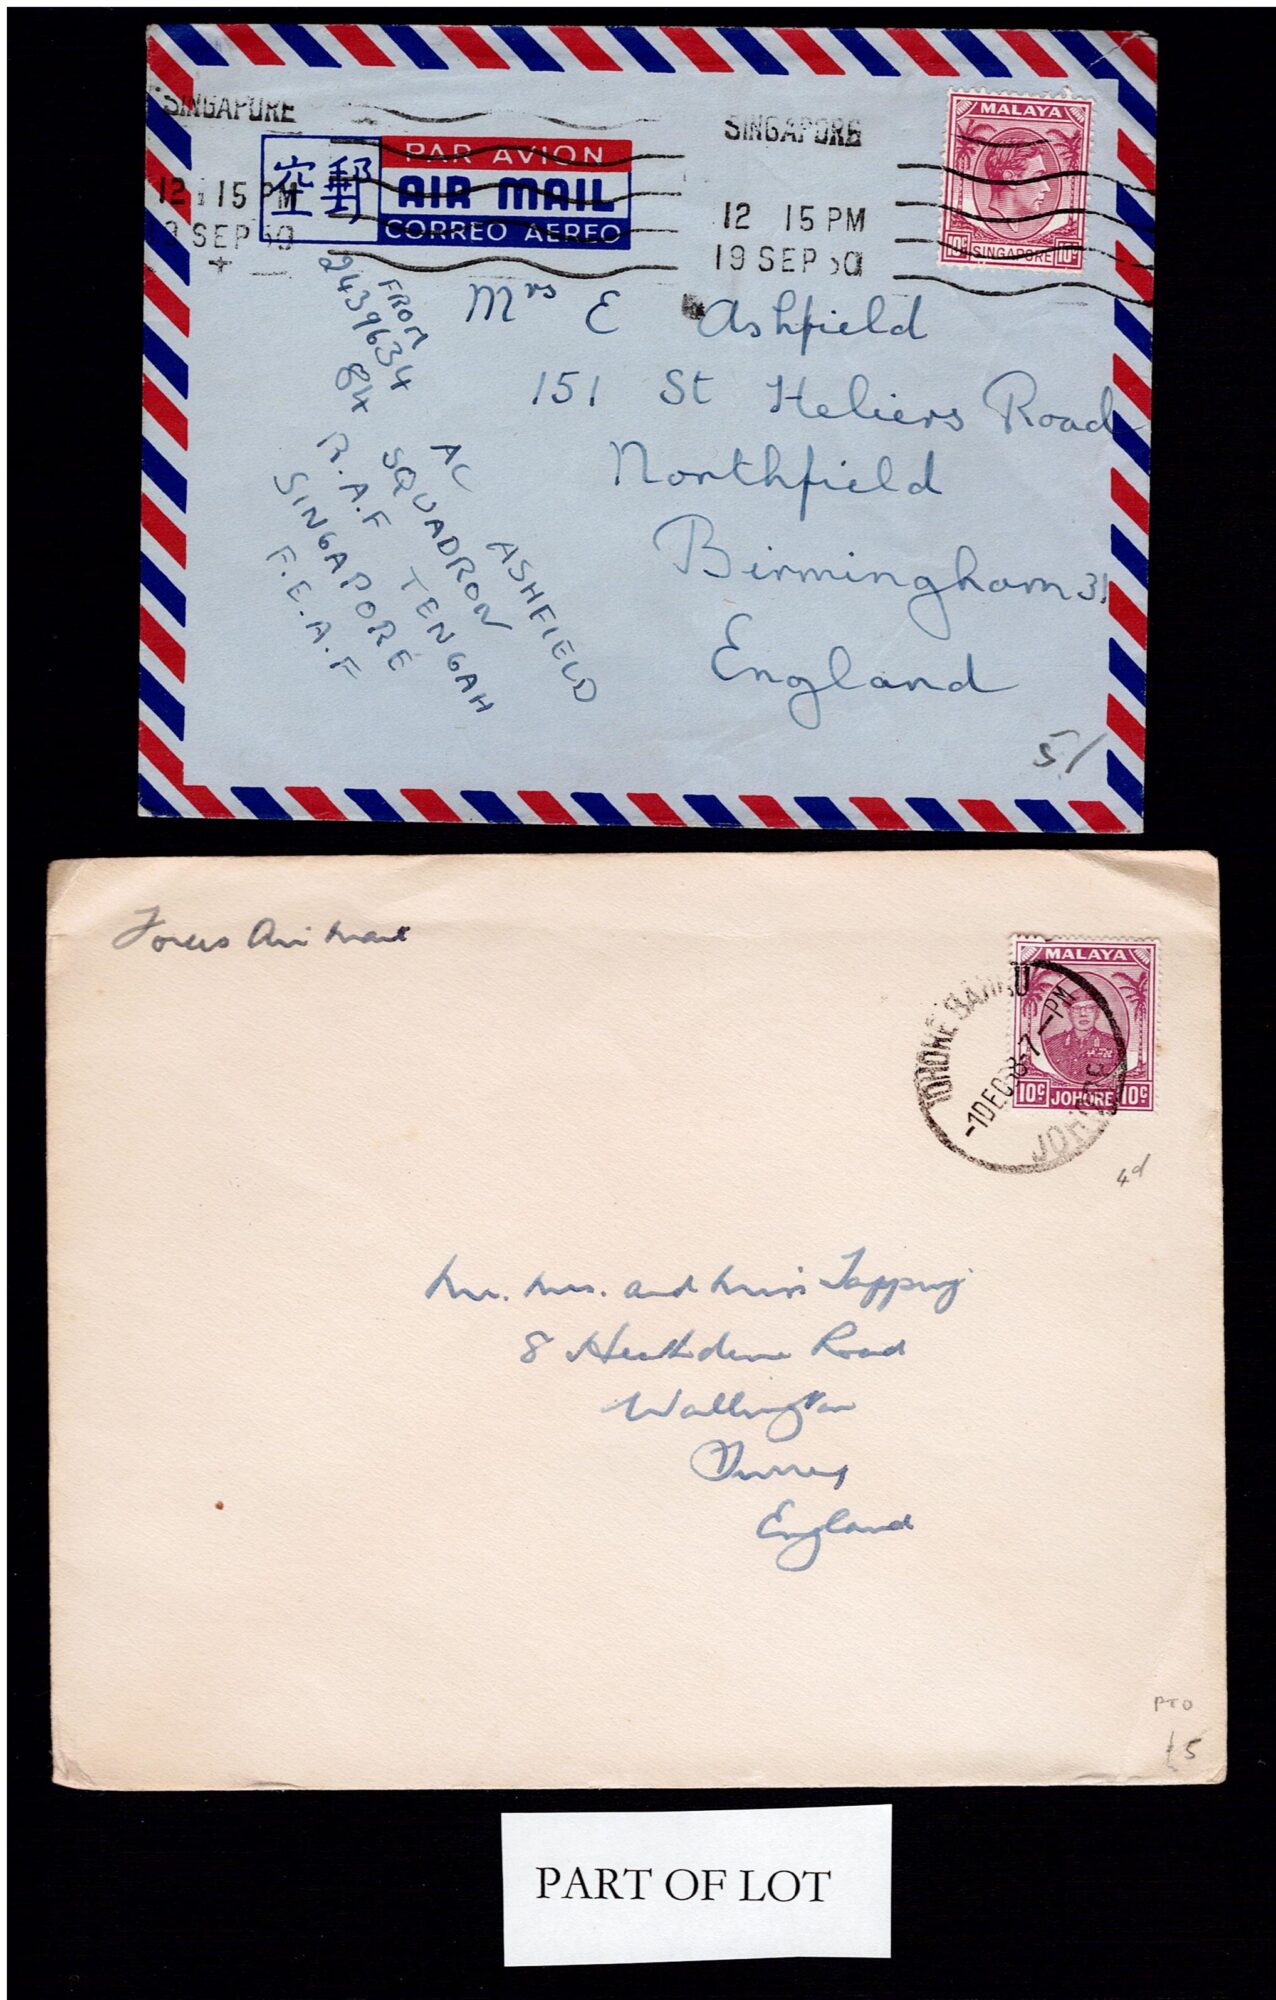 SINGAPORE
12 15 PM
9 SEP 50
空郵
PAR AVION
AIR MAIL
CORREO AEREO
SINGAPORE
12 15 PM
19 SEP 50
MALAYA
10c SINGAPORE 10c
FROM
2439634 AC ASHFIELD
84 SQUADRON
R.A.F TENGAH
SINGAPORE
F.E.A.F
Mrs E Ashfield
151 St Heliers Road
Northfield
Birmingham 31
England
5/
Forces Air Mail
MALAYA
10c JOHORE 10c
JOHORE BAHRU
7-PM
-1 DEC
JOHORE
4d
Mr. Mrs. and Miss Tapping
8 Heathdene Road
Wallington
Surrey
England
PTO
£5
PART OF LOT